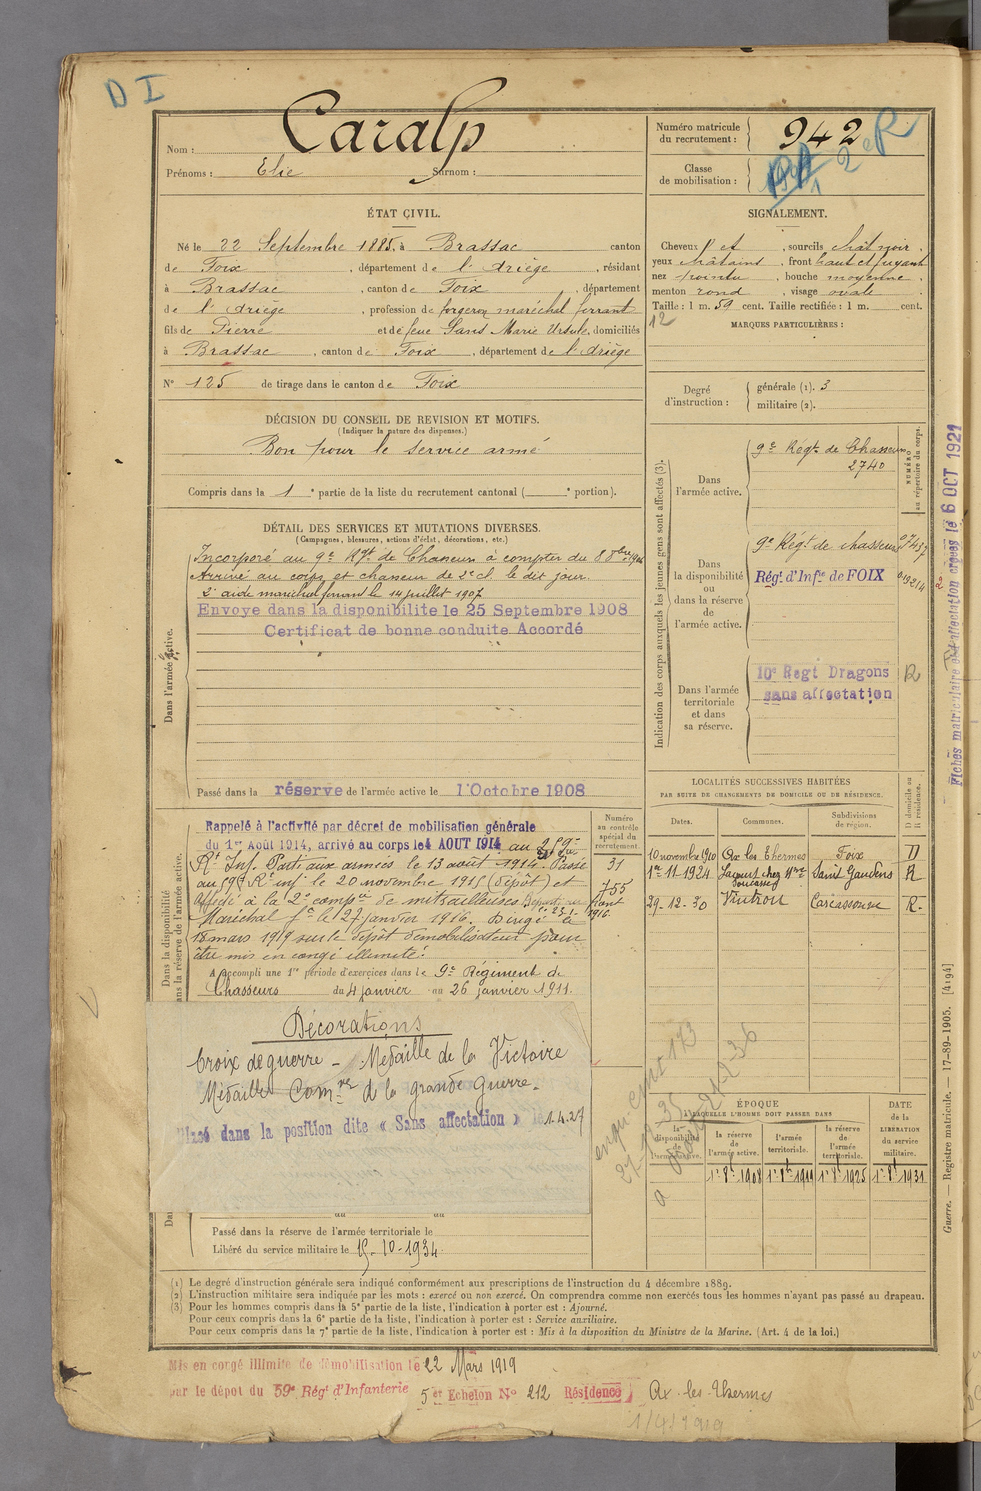 D I
Nom : Caralp
Prénoms : Elie Surnom :
Numéro matricule du recrutement : 942
2e R
Classe de mobilisation :
ÉTAT CIVIL.
Né le 22 Septembre 1885, à Brassac canton
de Foix, département de l'Ariège, résidant
à Brassac, canton de Foix, département
de l'Ariège, profession de forgeron maréchal ferrant
fils de Pierre et de feue Sans Marie Ursule, domiciliés
à Brassac, canton de Foix, département de l'Ariège
N° 125 de tirage dans le canton de Foix
SIGNALEMENT.
Cheveux et, sourcils chât noir.
yeux châtains, front haut et fuyant
nez pointu, bouche moyenne.
menton rond, visage ovale
Taille : 1 m. 59 cent. Taille rectifiée : 1 m. cent.
12
MARQUES PARTICULIÈRES :
Degré d'instruction : générale (1). 3
militaire (2).
DÉCISION DU CONSEIL DE REVISION ET MOTIFS.
(Indiquer la nature des dispenses.)
Bon pour le service armé
Compris dans la 1e partie de la liste du recrutement cantonal ( e portion).
DÉTAIL DES SERVICES ET MUTATIONS DIVERSES.
(Campagnes, blessures, actions d'éclat, décorations, etc.)
Dans l'armée active.
Incorporé au 9e Rgt de Chasseurs à compter du 8 8bre 1906
Arrivé au corps et chasseur de 2e cl le dit jour.
2e aide maréchal ferrant le 14 juillet 1907
Envoye dans la disponibilite le 25 Septembre 1908
Certificat de bonne conduite Accordé
Passé dans la réserve de l'armée active le 1 Octobre 1908
Indication des corps auxquels les jeunes gens sont affectés (3).
NUMÉRO au répertoire du corps.
Dans l'armée active.
9e Régt de Chasseurs
2740
Dans la disponibilité ou dans la réserve de l'armée active.
9e Régt de chasseurs
Régt d'Infie de FOIX
Dans l'armée territoriale et dans sa réserve.
10e Regt Dragons
sans affectation
R
Fiches matriculaire et d'affectation créées le 6 OCT 1921
Dans la disponibilité
dans la réserve de l'armée active.
Rappelé à l'activité par décret de mobilisation générale
du 1er Août 1914, arrivé au corps le 4 AOUT 1914 au 259e
Rt Inf. Parti aux armées le 13 août 1914. Passé
au 59e Rt inf le 20 novembre 1915 (dépôt) et
affecté à la 2e compie de mitrailleuses
Maréchal ft le 27 janvier 1916. Dirigé le
18 mars 1919 sur le dépôt démobilisateur pour
être mis en congé illimité.
A accompli une 1re période d'exercices dans le 9e Régiment de
Chasseurs du 4 janvier au 26 janvier 1911.
Numéro au contrôle spécial du recrutement.
31
755
Décorations
Croix de guerre - Médaille de la Victoire
Médaille Comve d la grande Guerre.
Classé dans la position dite « Sans affectation » le 1.4.27
Passé dans la réserve de l'armée territoriale le
Libéré du service militaire le 15-10-1934.
LOCALITÉS SUCCESSIVES HABITÉES
PAR SUITE DE CHANGEMENTS DE DOMICILE OU DE RÉSIDENCE.
Dates. Communes. Subdivisions de région. D domicile ou R résidence.
10 novembre 1910 Ax les Thermes Foix D
1er 11 1924 Saint Gaudens R
29-12-30 Vintrou Carcassonne R.
ÉPOQUE
À LAQUELLE L'HOMME DOIT PASSER DANS
la disponibilité de l'armée active.
la réserve de l'armée active.
l'armée territoriale.
la réserve de l'armée territoriale.
DATE de la LIBÉRATION du service militaire.
1er 8bre 1908 1er 8bre 1919 1er 8bre 1925 1er 8bre 1931
Guerre. — Registre matricule. — 17-89-1905. [4194]
(1) Le degré d'instruction générale sera indiqué conformément aux prescriptions de l'instruction du 4 décembre 1889.
(2) L'instruction militaire sera indiquée par les mots : exercé ou non exercé. On comprendra comme non exercés tous les hommes n'ayant pas passé au drapeau.
(3) Pour les hommes compris dans la 5e partie de la liste, l'indication à porter est : Ajourné.
Pour ceux compris dans la 6e partie de la liste, l'indication à porter est : Service auxiliaire.
Pour ceux compris dans la 7e partie de la liste, l'indication à porter est : Mis à la disposition du Ministre de la Marine. (Art. 4 de la loi.)
Mis en congé illimité de démobilisation le 22 Mars 1919
par le dépôt du 59e Régt d'Infanterie 5e Echelon N° 212 Résidence Ax-les-Thermes